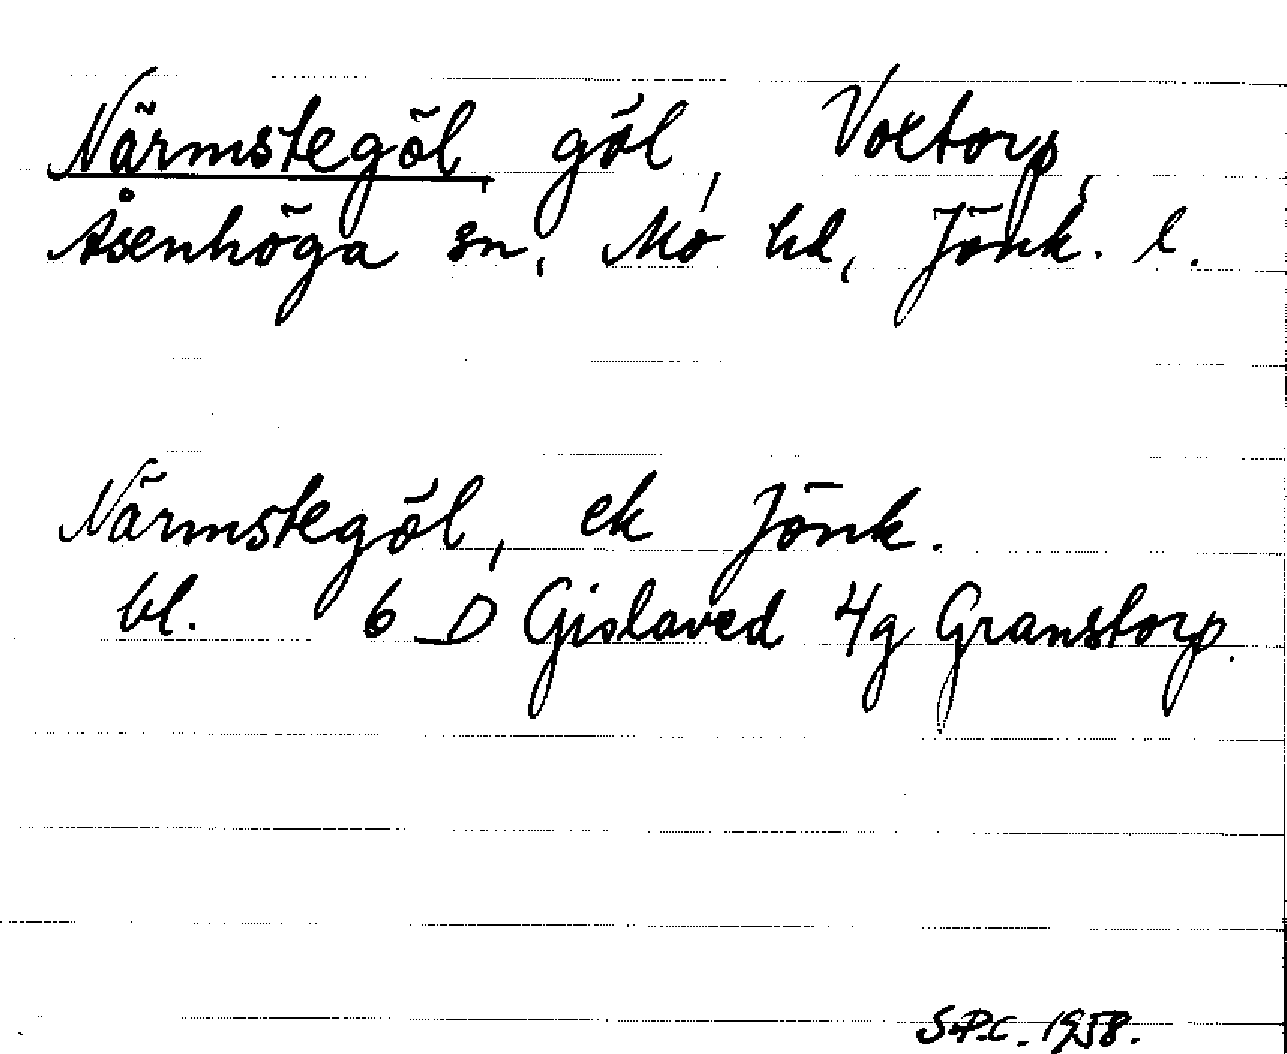 Närmstegöl, göl, Voxtorp,
Åsenhöga sn, Mo hd, Jönk. l.
Närmstegöl, ek Jönk.
bl. 6 D Gislaved 4g Granstorp.
S.P.C. 1958.